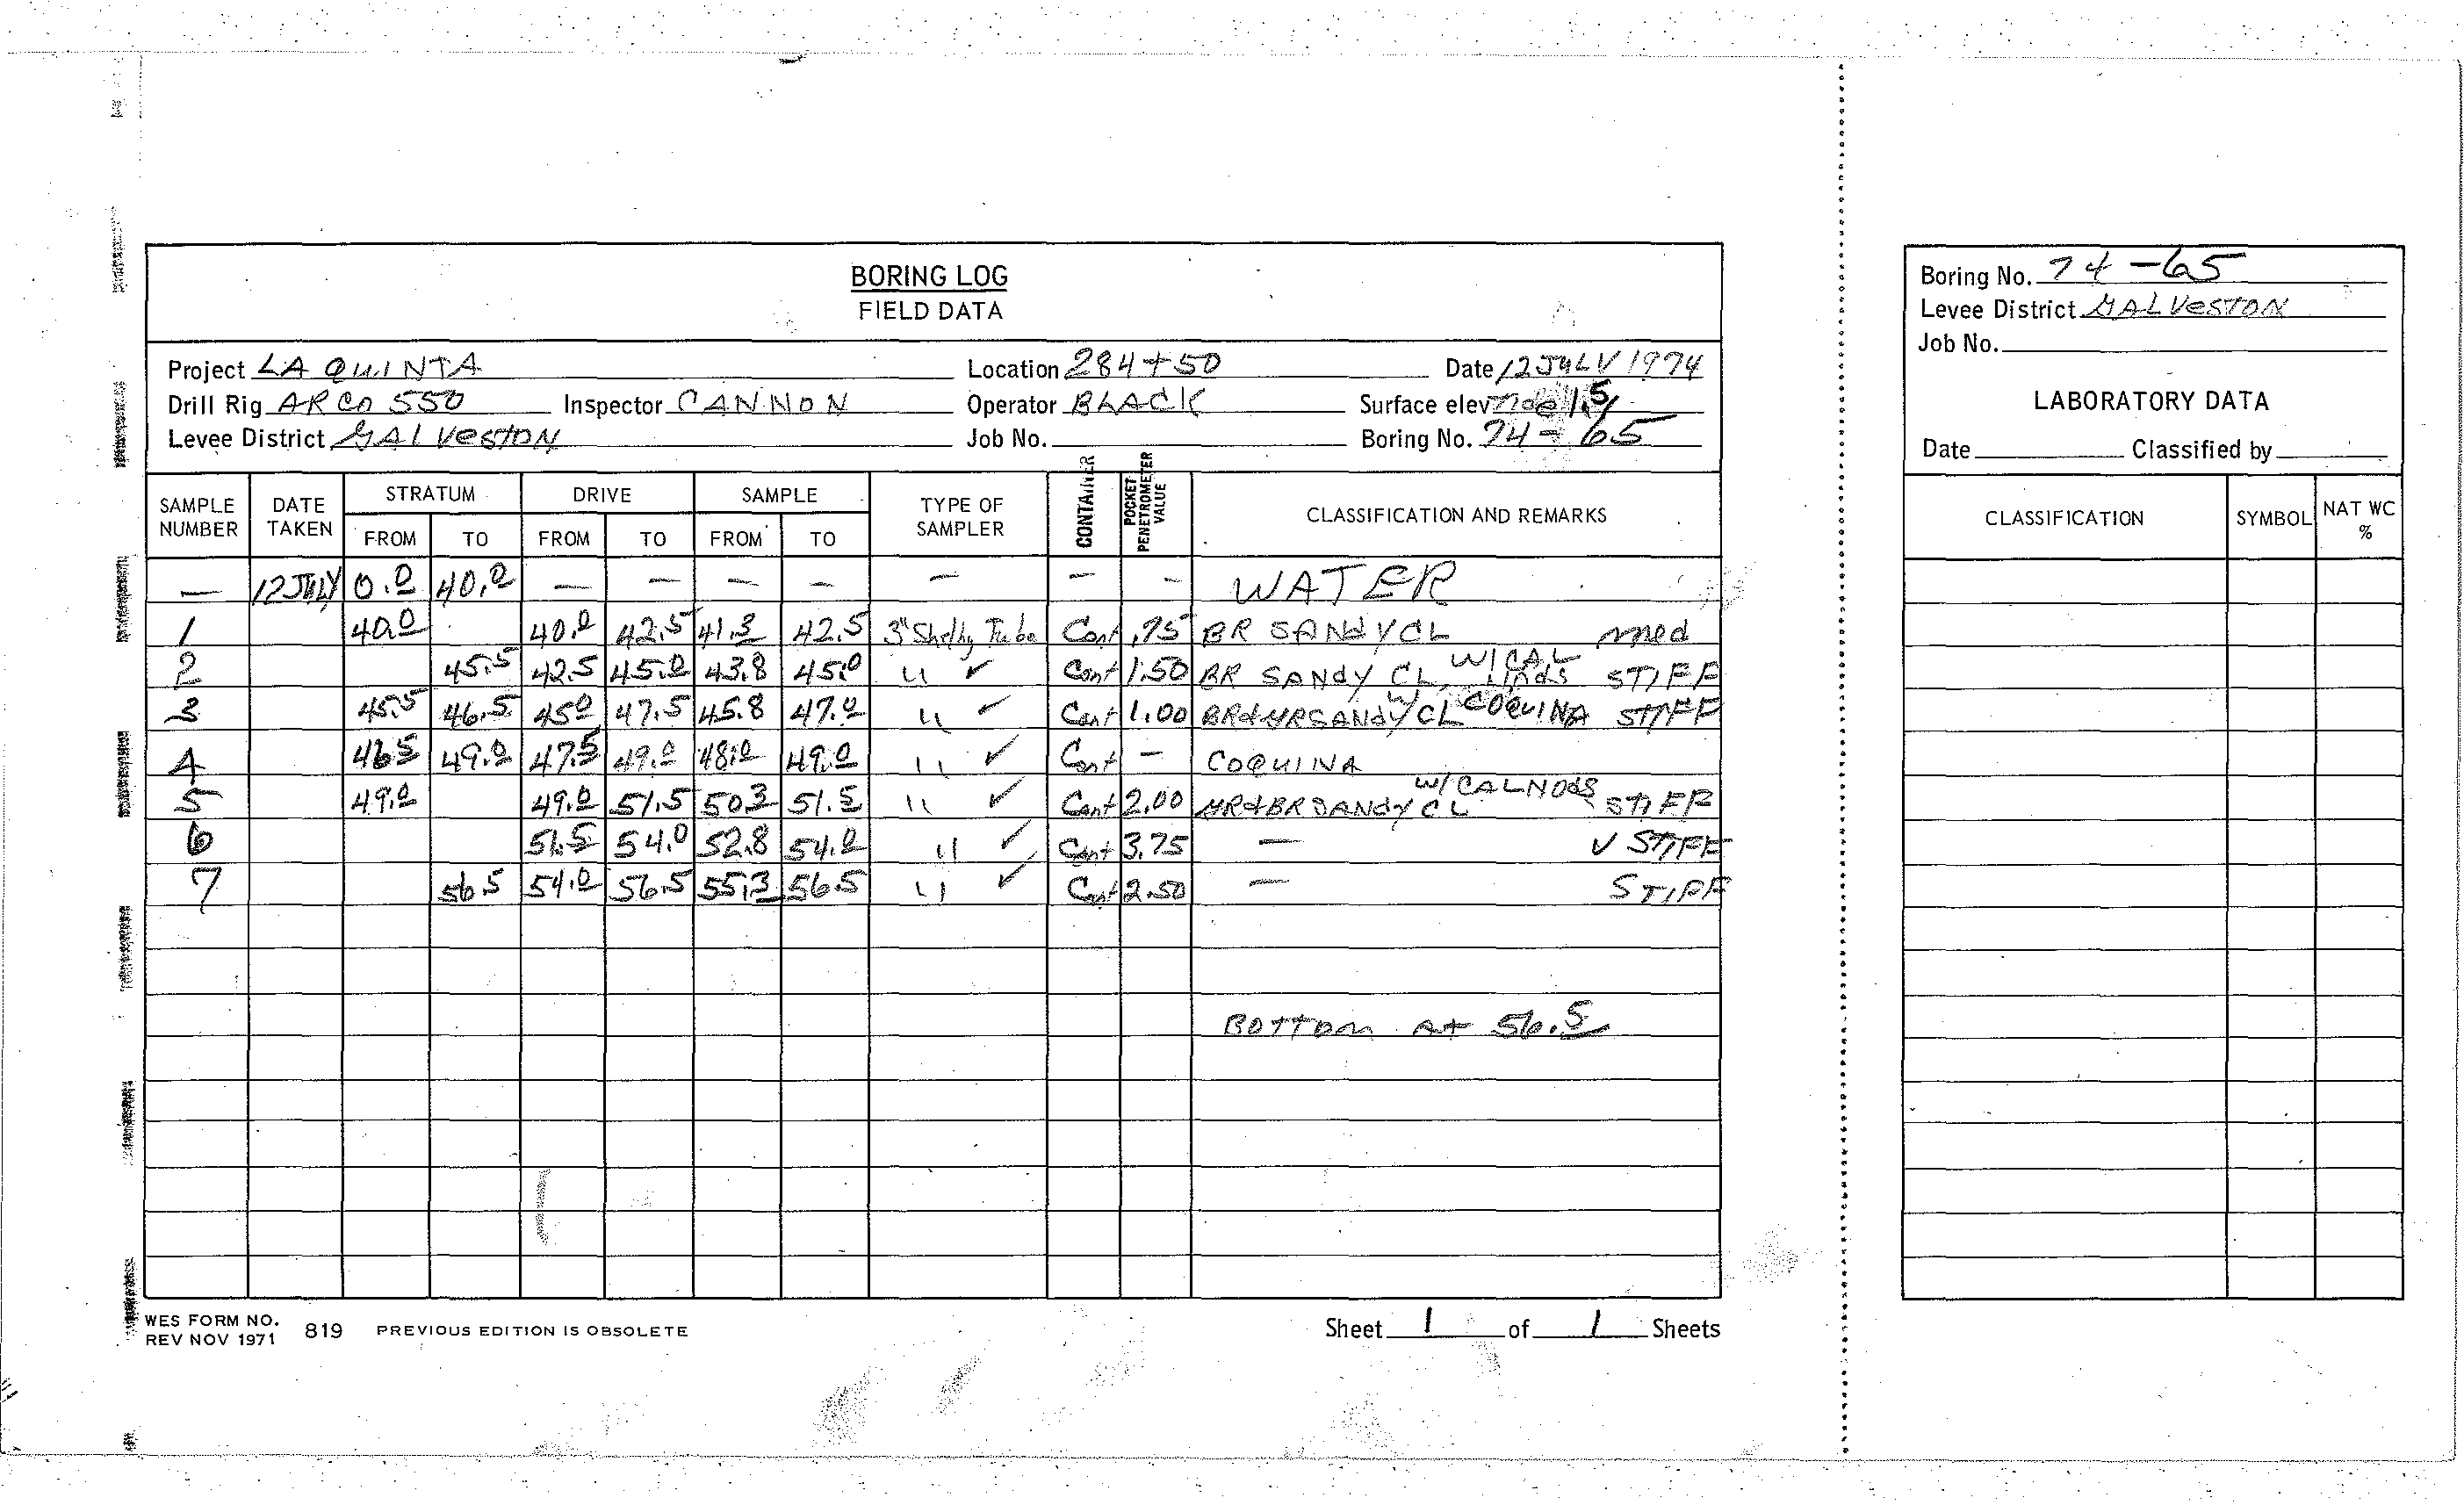 BORING LOG
FIELD DATA
Project LA QUINTA Location 284+50 Date 12 JULY 1974
Drill Rig ARCO 550 Inspector CANNON Operator BLACK Surface elev Tide 1.5
Levee District GALVESTON Job No. Boring No. 74-65
SAMPLE NUMBER DATE TAKEN STRATUM FROM TO DRIVE FROM TO SAMPLE FROM TO TYPE OF SAMPLER CONTAINER POCKET PENETROMETER VALUE CLASSIFICATION AND REMARKS
— 12 JULY 0.0 40.0 — — — — — — — WATER
1 40.0 40.0 42.5 41.3 42.5 3" Shelby Tube Cont .75 BR SANDY CL med
2 45.5 42.5 45.0 43.8 45.0 " ✓ Cont 1.50 BR SANDY CL, W/CAL nods STIFF
3 45.5 46.5 45.0 47.5 45.8 47.0 " ✓ Cont 1.00 BR&GR SANDY CL W/ COQUINA STIFF
4 46.5 49.0 47.5 49.0 48.0 49.0 " ✓ Cont — COQUINA
5 49.0 49.0 51.5 50.3 51.5 " ✓ Cont 2.00 GR&BR SANDY CL W/CALNODS STIFF
6 51.5 54.0 52.8 54.0 " ✓ Cont 3.75 — V STIFF
7 56.5 54.0 56.5 55.3 56.5 " ✓ Cont 2.50 — STIFF
BOTTOM At 56.5
WES FORM NO. 819 PREVIOUS EDITION IS OBSOLETE
REV NOV 1971
Sheet 1 of 1 Sheets
Boring No. 74-65
Levee District GALVESTON
Job No.
LABORATORY DATA
Date Classified by
CLASSIFICATION SYMBOL NAT WC %